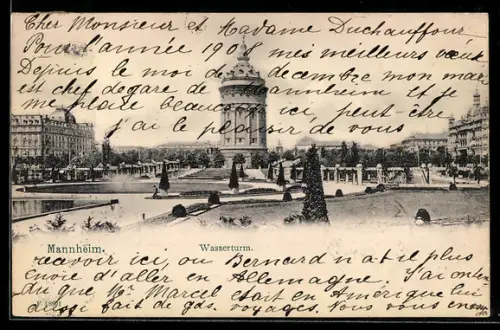 Cher Monsieur et Madame Duchauffour
Pour l'année 1908 mes meilleurs vœux
Depuis le moi de décembre mon mar
est chef de gare de Mannheim et je
me plaire beaucou ici, peut-être
j'ai le plaisir de vous
Mannheim. Wasserturm.
recevoir ici, ou Bernard n'at il plus
envie d'aller en Allemagne, J'ai enten
du que Mr Marcel etait en Amérique lui
aussi fait de gds. voyages. Nous vous